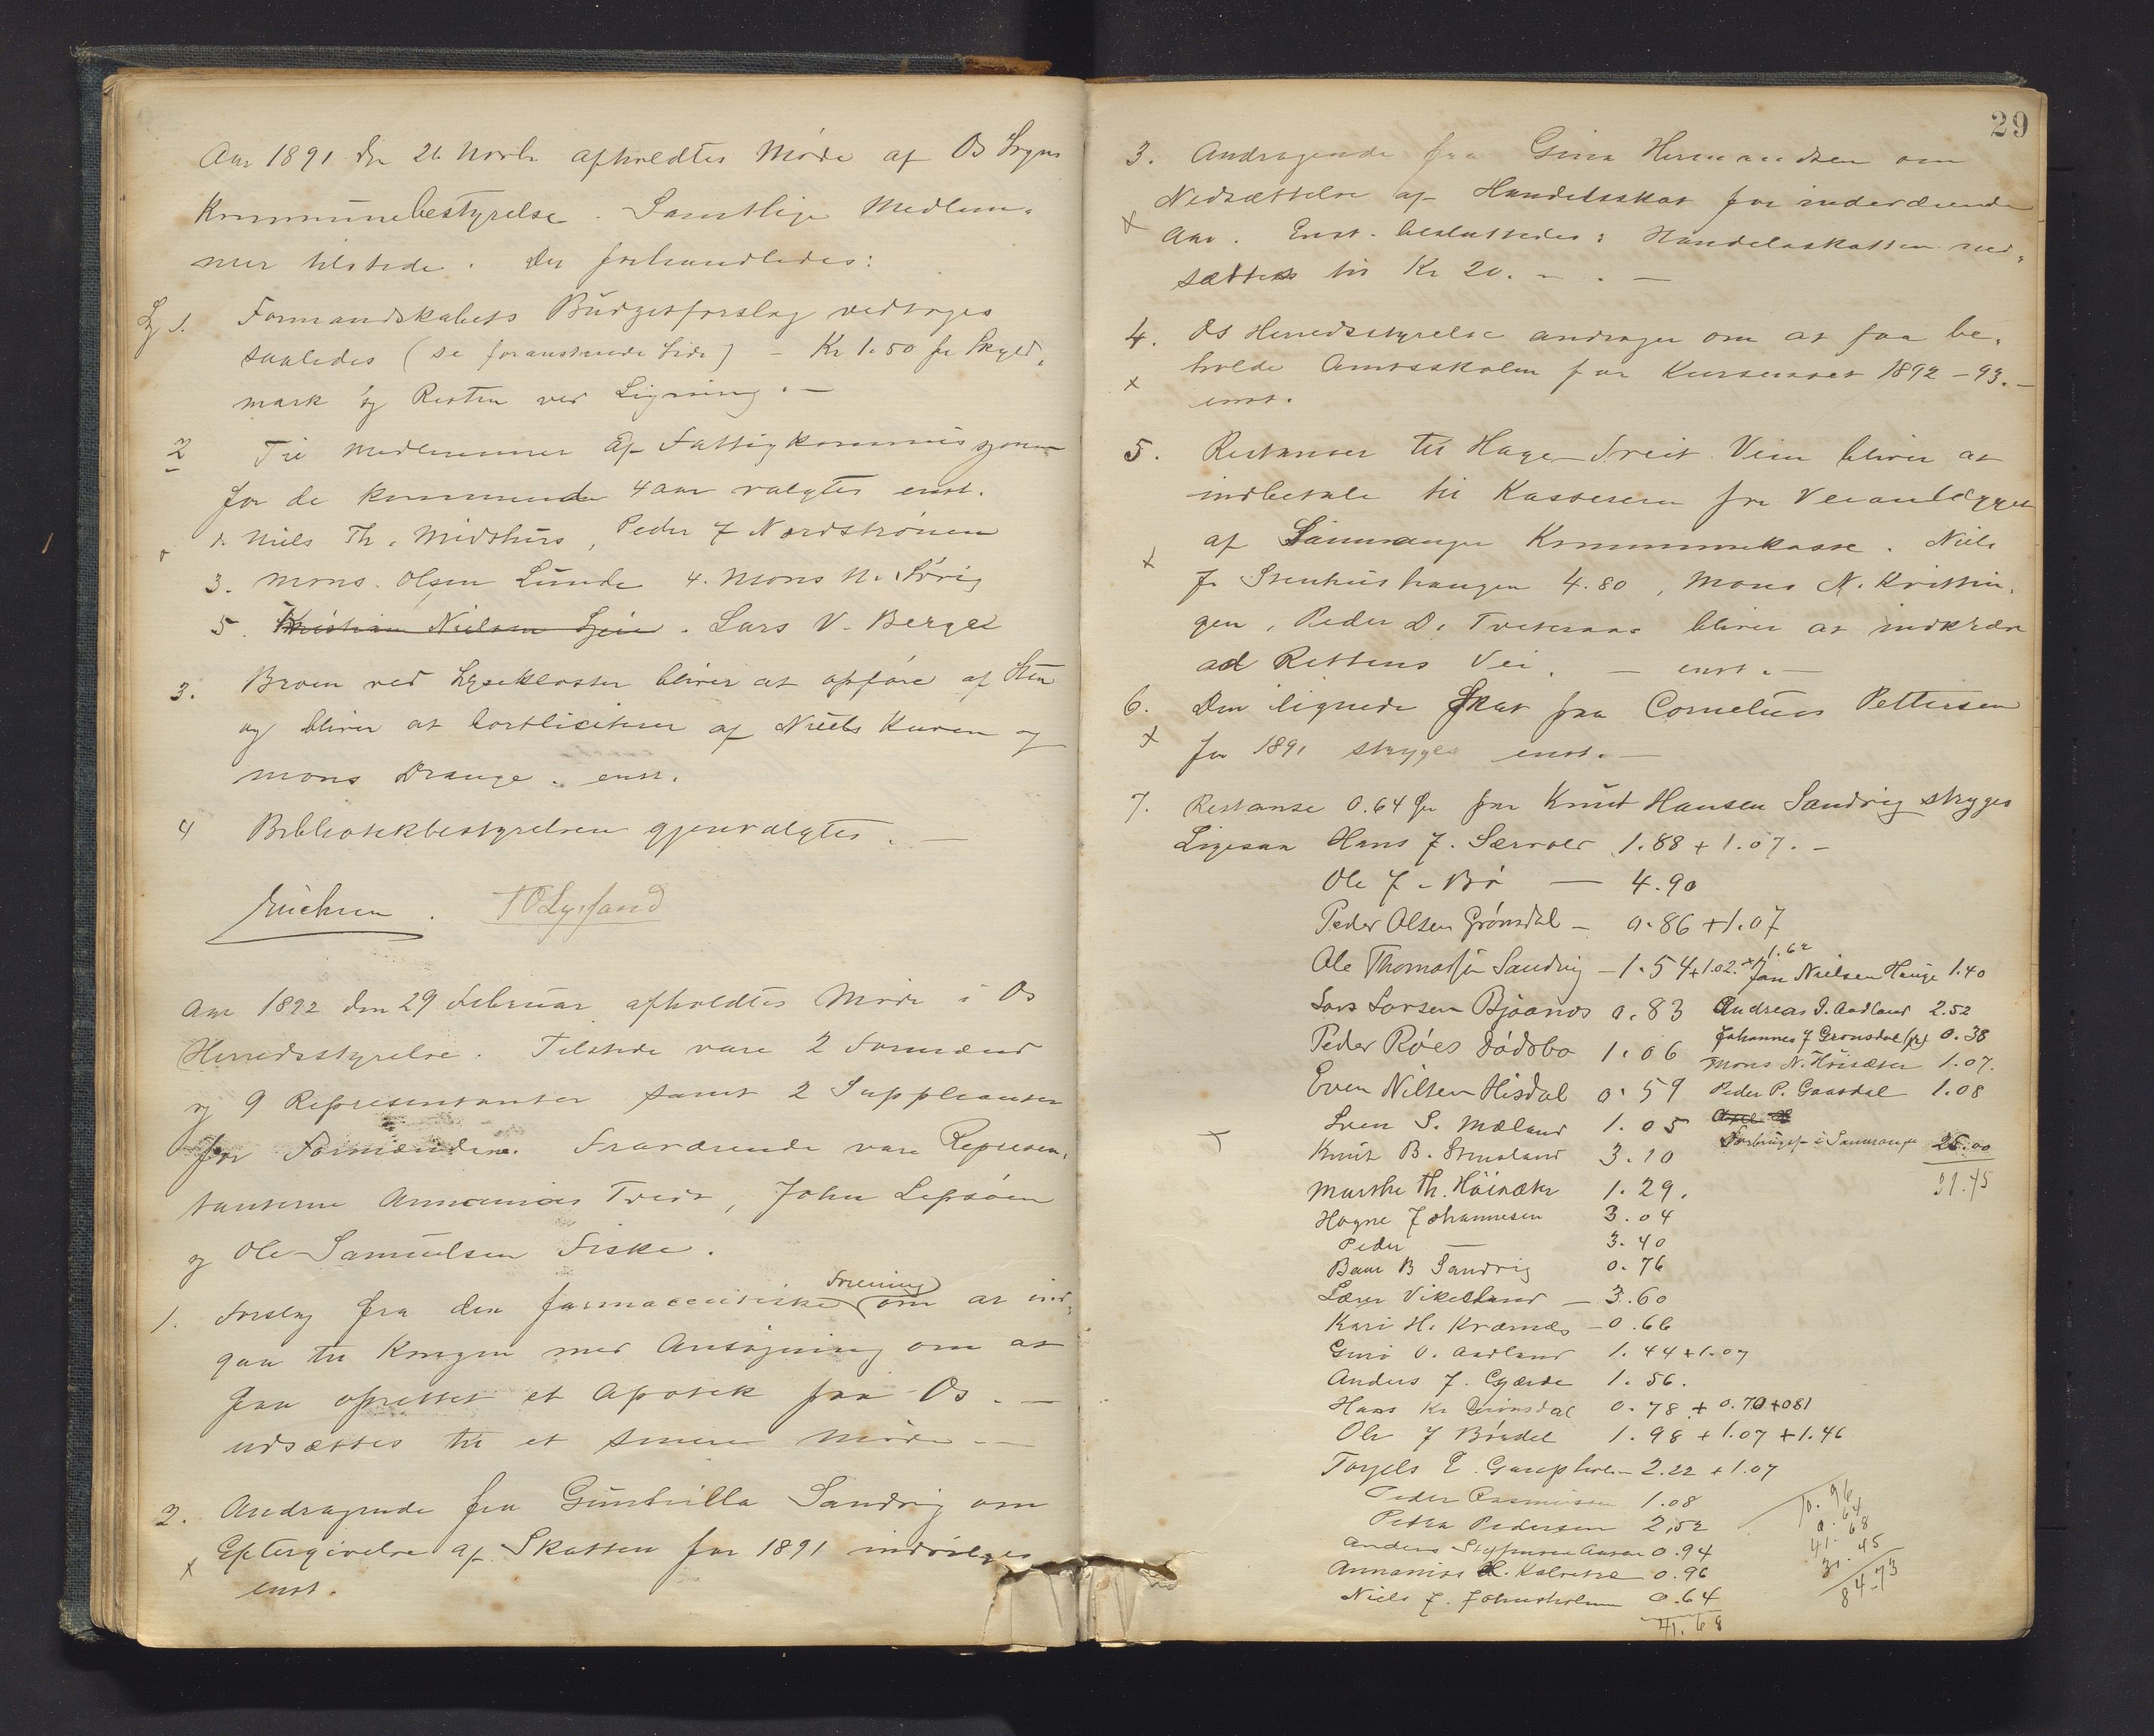 Aar 1891 den 26 Novbr afholdtes Møde af Os Sogns
Kommunebestyrelse. Samtlige Medlem-
mer tilstede. Der forhandledes:
1. Formandskabets Budgetforslag vedtoges
saaledes (se foranstaaende Side) - Kr 1.50 pr Skyld-
mark og Resten ved Ligning. -
2 Tre Medlemmer af Fattigkommissjonen
for de kommende 4 aar valgtes enst.
Niels Th. Midthus, Peder J Nordstrønen
3. Mons. Olsen Lunde 4. Mons N. Søvig
5. Kristian Nielsen Lyein. Lars V. Berge
3. Broen ved Lysekloster bliver at opføre af Sten
og bliver at bortlicitere af Niels Kuven og
Mons Drange. enst.
4 Bibliotekbestyrelsen gjenvalgtes. -
T O Lyssand
Aar 1892 den 29 Februar afholdtes Møde i Os
Herredsstyrelse. Tilstede vare 2 Formænd
og 9 Repræsentanter samt 2 Suppleanter
for Formændene. Fraværende vare Represen-
tanterne Annanias Tveit, John Lepsøen
og Ole Samuelsen Fiske.
1. Forslag fra den farmaceutiske Forening om at ind-
gaa til Kongen med Ansøgning om at
faa oprettet et Apotek paa Os. -
udsættes til et senere Møde. -
2. Andragende fra Gunhilla Sandvig om
Eftergivelse af Skatten for 1891 indvilges
x enst.
29
3. Andragende fra Gina Hermandsen om
Nedsættelse af Handelsskat for indeværende
x Aar. Enst. besluttedes: Handelsskatten ned-
sættes til Kr 20. -
4. Os Herredsstyrelse andrager om at faa be-
x holde Amtsskolen for Kursusset 1892-93. -
enst.
5. Restanser til Hage-Tveit Veien bliver at
indbetale til Kassereren for Veianlægget
x af Samnanger Kommunekasse. Niels
J. Stenhushaugen 4.80, Mons N. Kristin-
gen, Peder D. Tveteraas bliver at indkræve
ad Rettens Vei. - enst. -
6. Den lignede Skat fra Cornelius Pettersen
x for 1891 stryges enst. -
7. Restanse 0.64 Ør for Knut Hansen Sandvig stryges
Ligesaa Hans J. Særvold 1.88 + 1.07. -
Ole J. Bø - 4.90
Peder Olsen Grønsdal - 0.86 + 1.07
Ole Thomassen Sandvig - 1.54 + 1.02. + 1.62
Jan Nielsen Hauge 1.40
Lars Larsen Bjøanes 0.83 Andreas I. Aadland 2.52
Peder Røes Bødsbo 1.06 Johannes J Grønsdal 0.38
Mons N. Høisæter 1.07.
Even Nilsen Hisdal 0.59 Peder P. Gaasdal 1.08
Sven S. Mæland 1.05
x Knut B. Stensland 3.10 i Samnanger 25.00
Marthe Th. Høisæter 1.29. 31.45
Hogne Johannesen 3.04
Peder — 3.40
Baar B Sandvig 0.76
Lærer Vikesland - 3.60
Kari H. Kræmes - 0.66
Guro O. Aadland 1.44 + 1.07
Anders J. Gjærde 1.56.
Hans Kr Grønsdal 0.78 + 0.70 + 081
Ole J Børdal 1.98 + 1.07 + 1.46
Torgels E. Gaupholm 2.22 + 1.07
Peder Rasmussen 1.08
Petra Pedersen 2,52
Anders 0.94
Annanias Kalvene 0.96
Niels J. 0.64
41.68
10.96
0.64
41.68
31.45
84.73